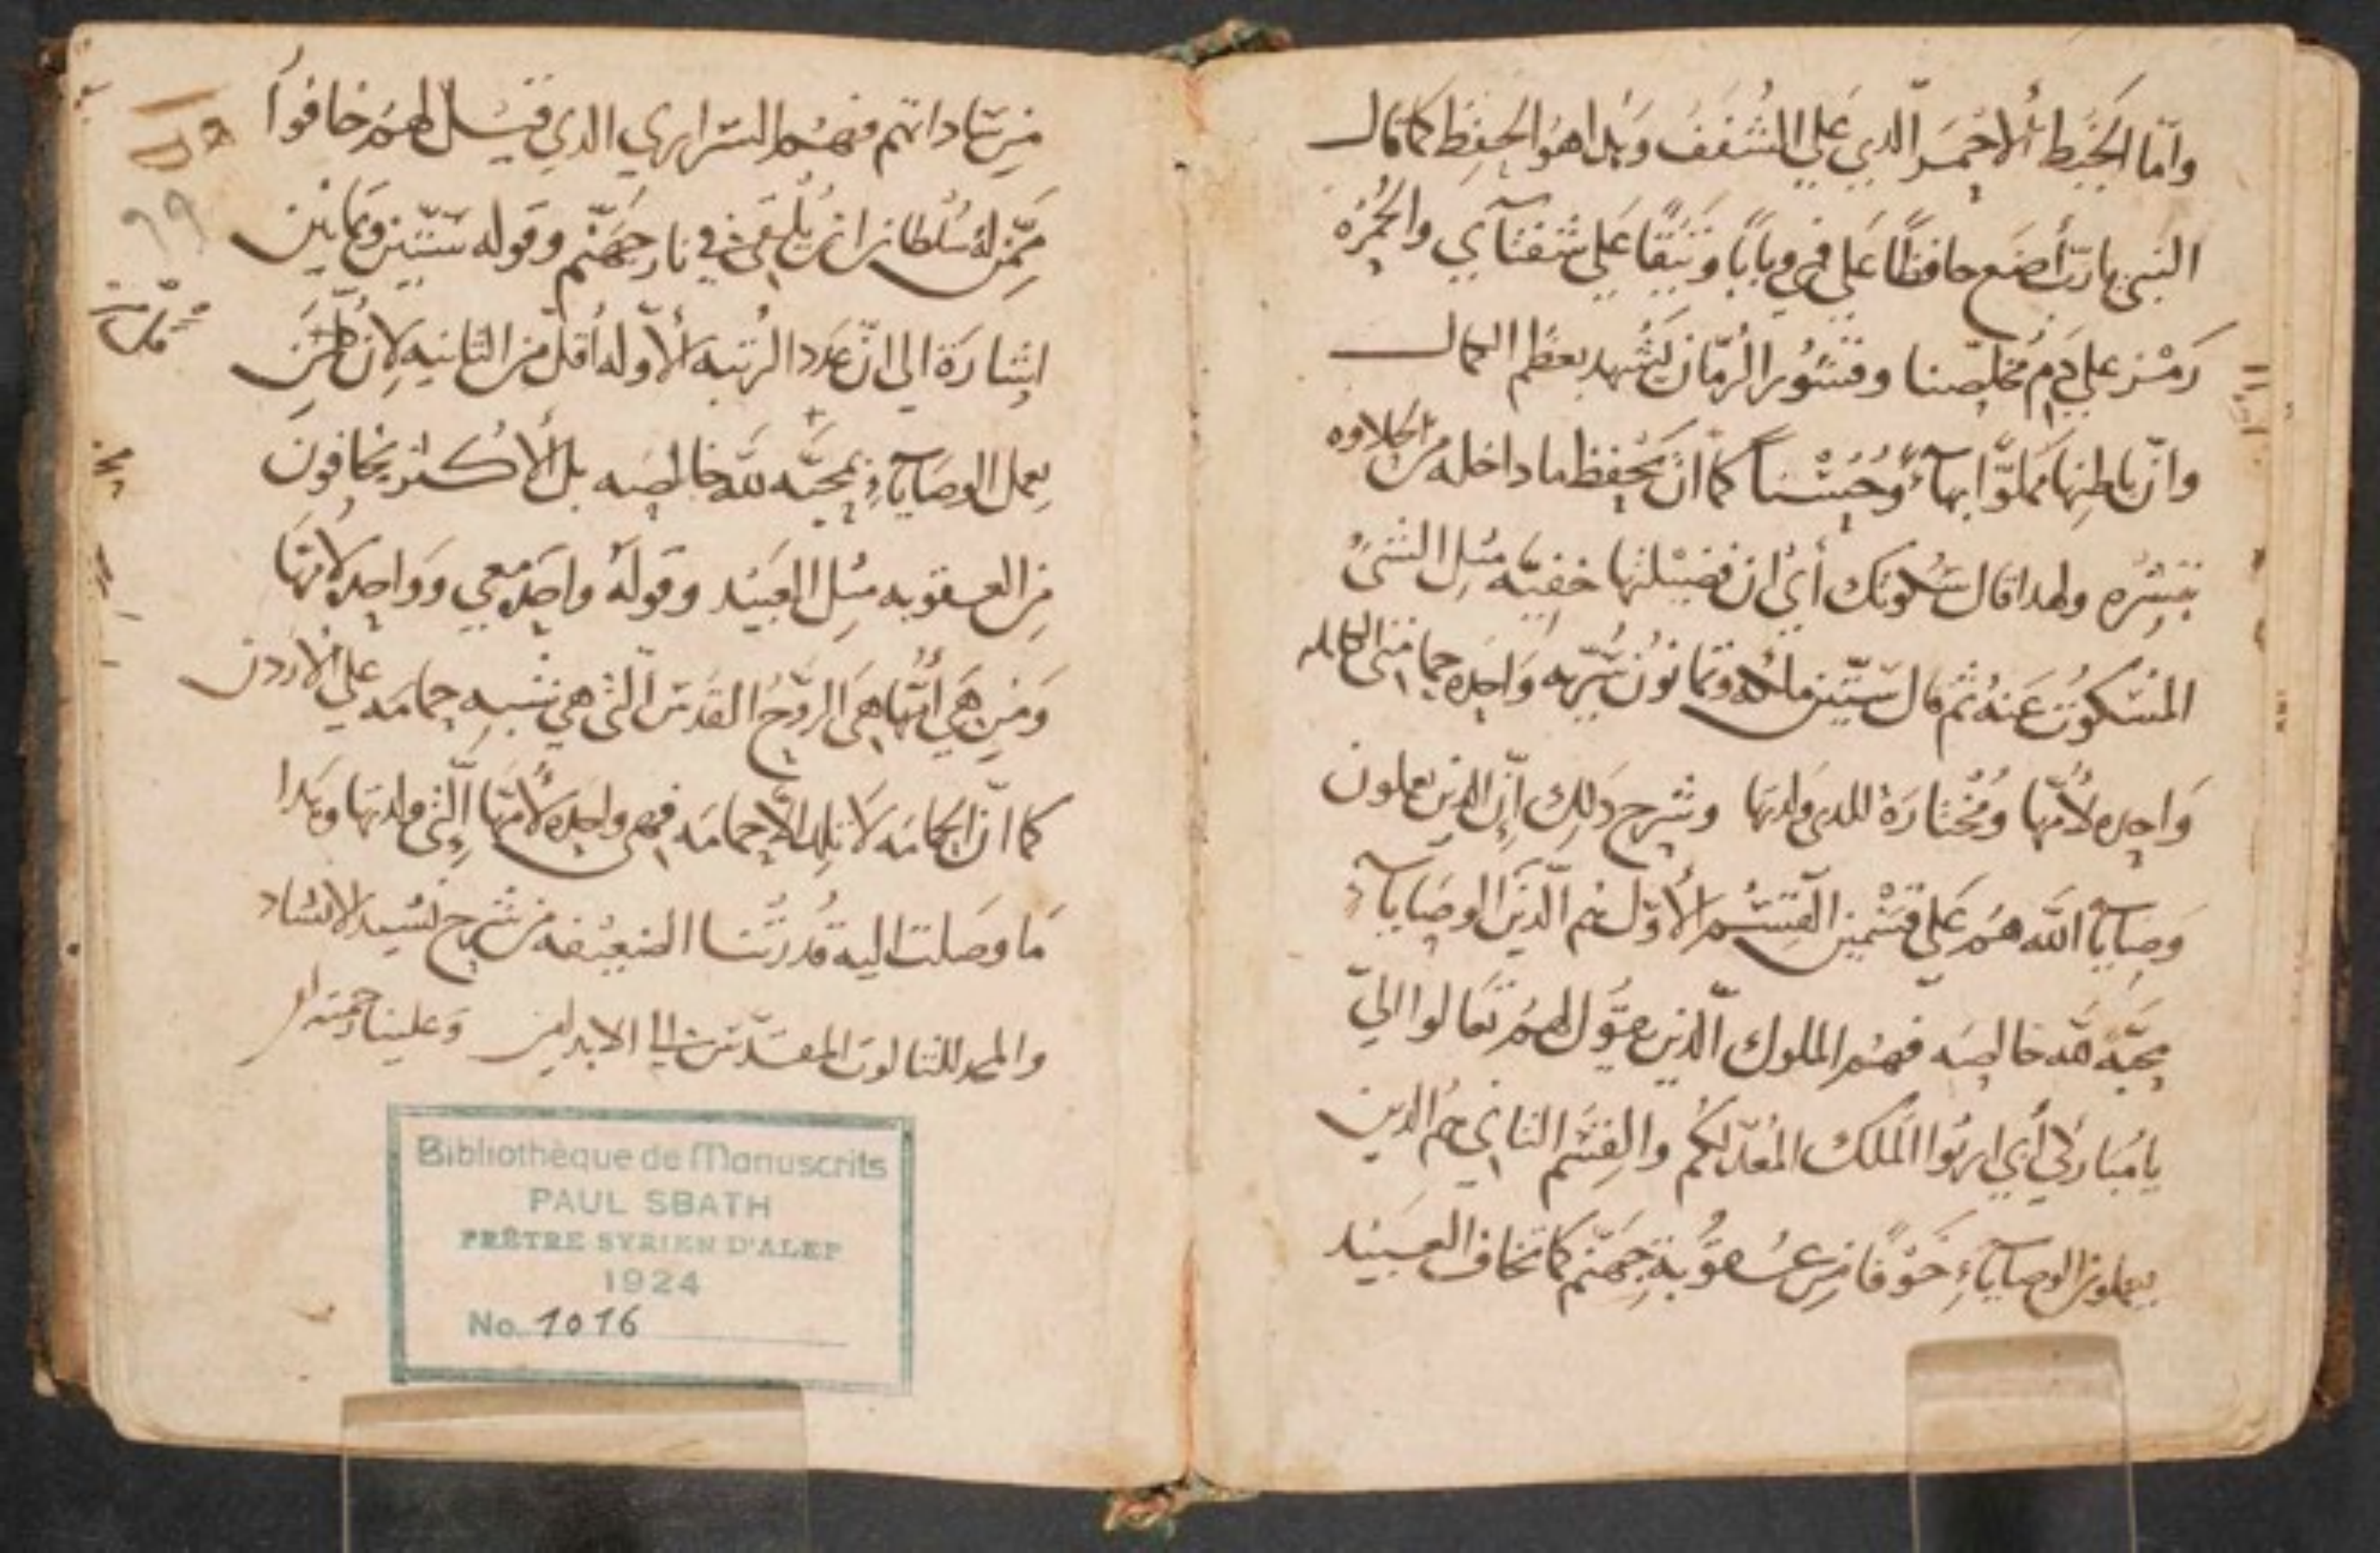 وأمّا الخَيط الأحْمَر الّذي عَلي الشُفَفَ وَبُدا هوَ الحِفظ كما قال
النبي يا ربّ أضَع حافظًا عَلي فمي وبابًا وَثيقًا عَلي شفتآي والحُمْرَة
رَمْز علي دَم مُخلصّنا وقشُور الرُمّان يَشْهد بعظم الكمال
وانّ باطِنها مملوّا بهآءً وَحُسْنًا كما انّ يَحفظ ما داخله من الحلاوه
بقِشْرِه ولهدا قال سُكوتك أي ان فضيْلتها خفيّه مثِل الشَيءُ
المُسكوُت عَنهُ ثمّ قال ستّين ملكه وثمانوُن سُرّيه وَاحِدَه حمامتي الكامله
وَاحِده لأمّها وَمُختارَة للدي ولدتها وشرح دَلِك أنّ الدين يعملون
وَصايآ الله هم عَلي قسْمين القِسْم الأوّل هُم الّدينَ الوصايآء
بمحبَّة لله خالصه فهُم الملوك الّدين يقوُل لهمُ تعَالوا اليّ
يا مُبَاركي أبي ارثوا الملك المُعدّ لكُم والقِسْم التاني هم الدين
يعملون الوصايآءِ خَوْفًا مِن عُقوُبة جَهنّم كما تخاف العَبيْد
من سَاداتهم فهُم السَراري الدي قيْل لهمُ خافوُا
ممّن لهُ سُلطان ان يُلقي في نار جَهَنّم وقوله ستّين وثمانين
إشارَة الي انّ عَدد الرُتبَه الأوّله أقلّ من التانيه لانّ
يعمل الوصَايآءِ بمحبّه للّه خالصه بل الأكثر يخافون
مِن العقوبه مثِل العَبيْد وقولهُ واحِده معي وَواحِده لأمّهَا
وَمَن هيَ أُمّها هيَ الرّوُح القدسَ الّتي هي شبه حمامه علي الأردن
كما انّ الحمامَه لا تلِد الاّ حمامَه فهي واحِده لأمّها الّتي ولدتها وَبَدا
مَا وصَلت اليه قُدرتُنا الضعِيْفه من شرح نشيد الانشاد
والمجد للتالوت المقدّس الي الابد امين وَعلينا رحمته امين
Bibliothèque de Manuscrits
PAUL SBATH
PRÊTRE SYRIEN D'ALEP
1924
No. 1016